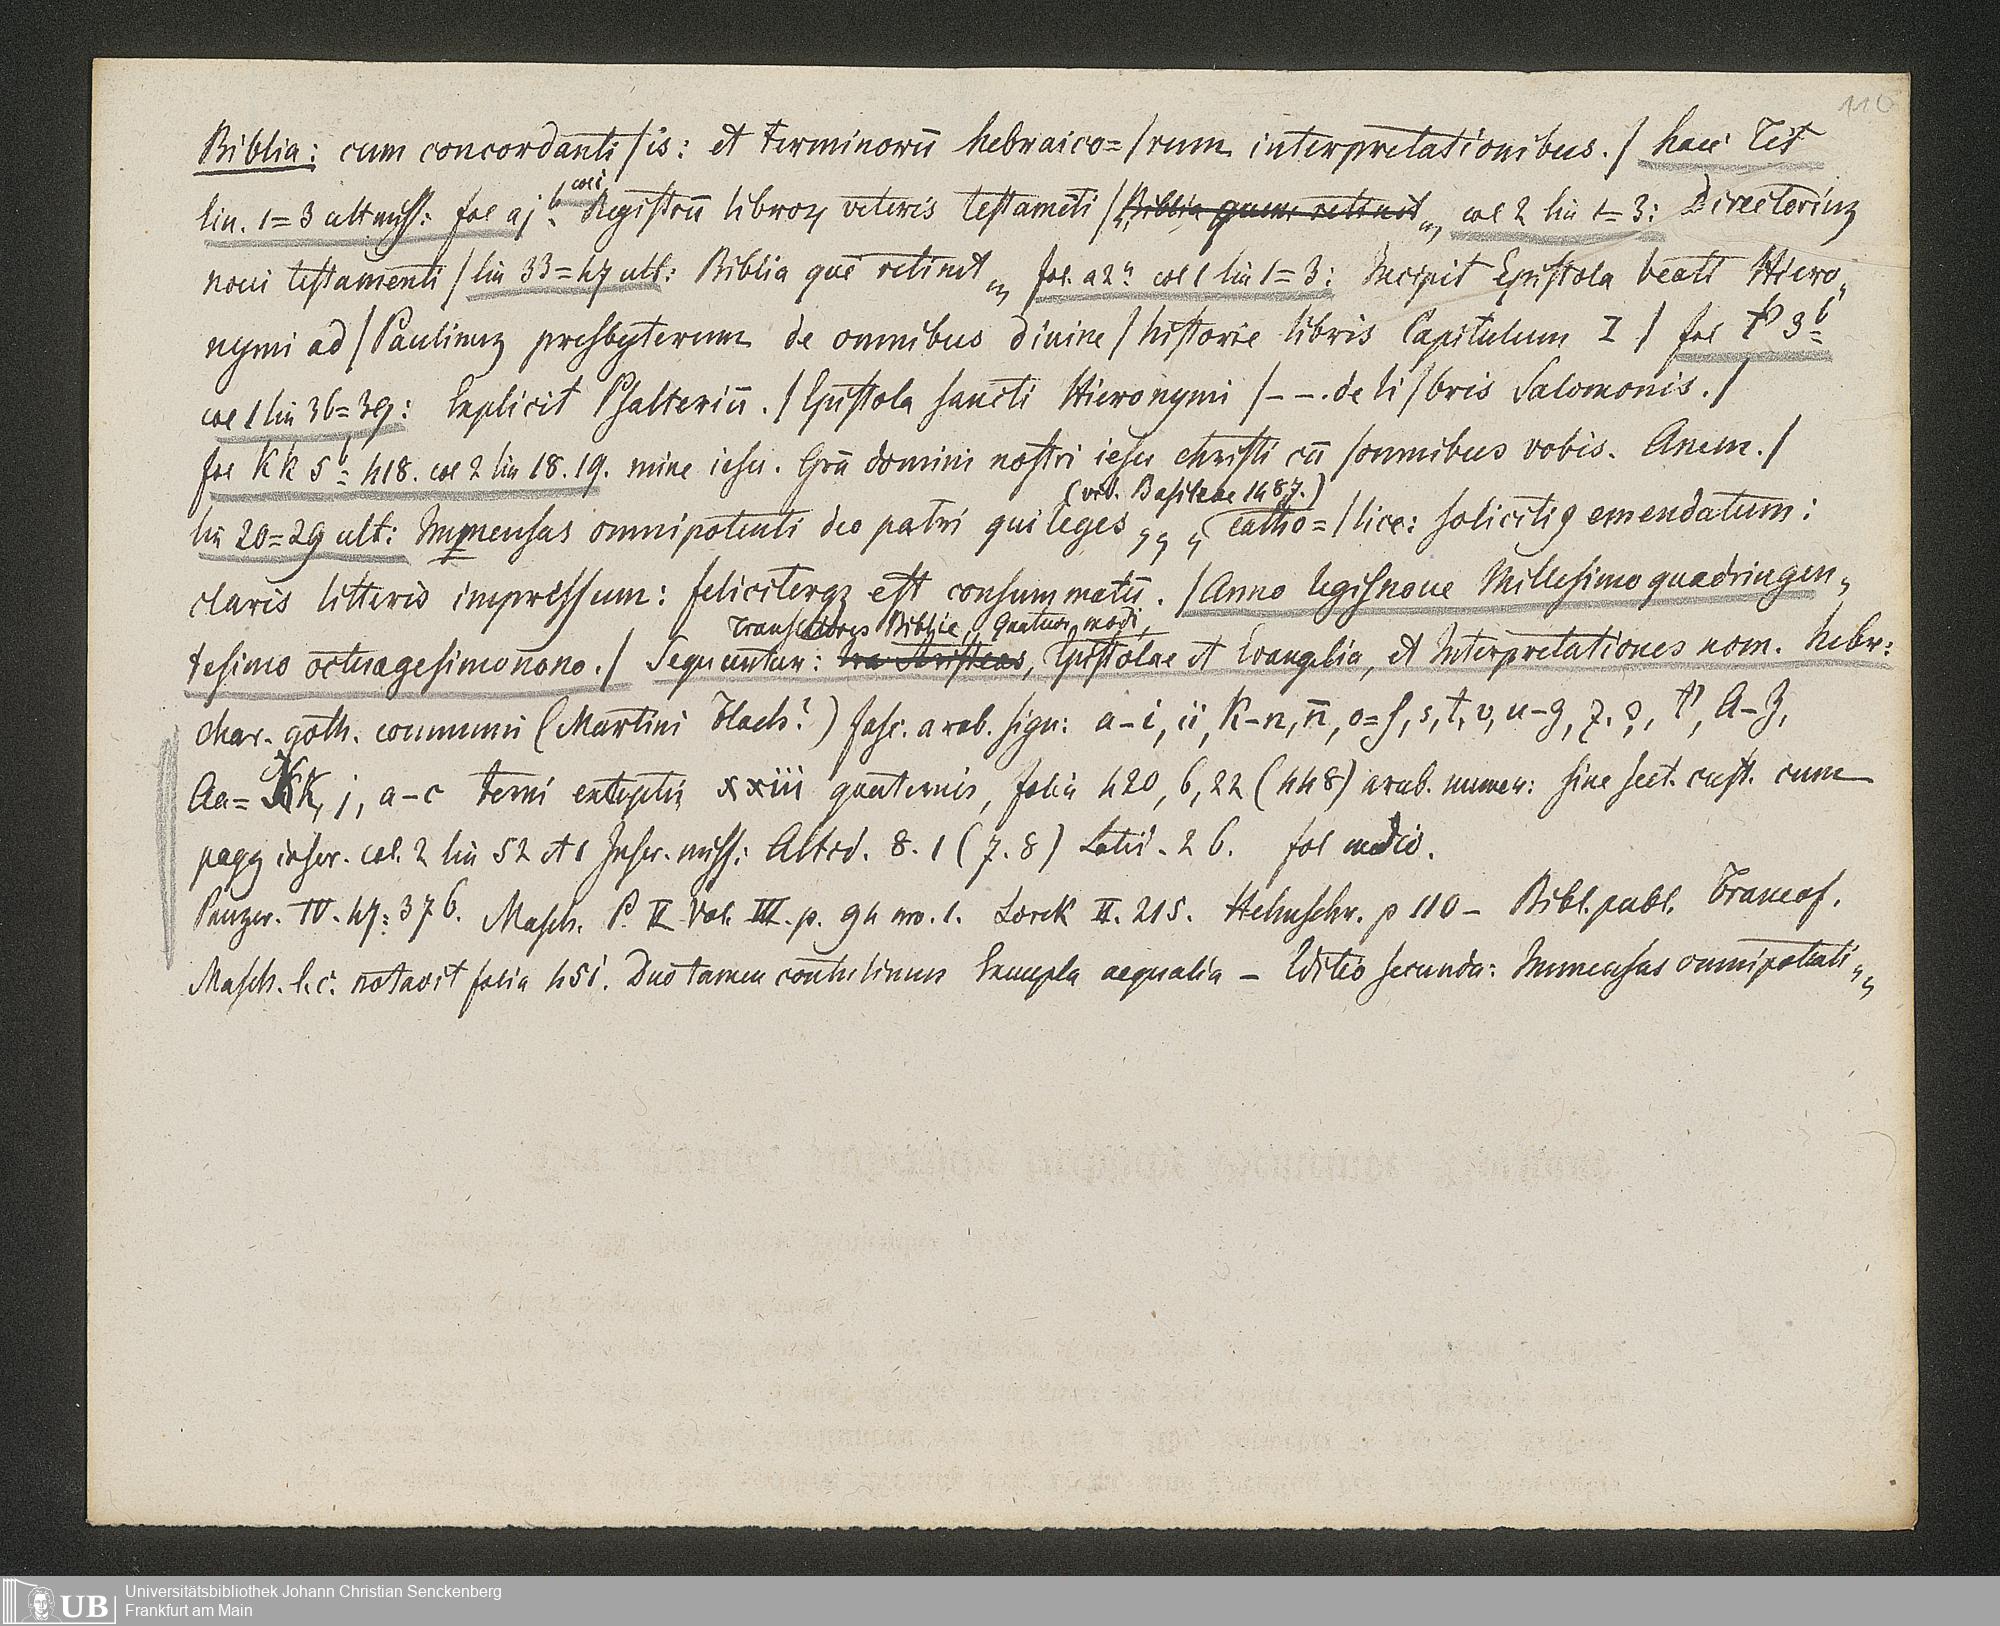 110
Biblia: cum concordanti/is: et terminorū hebraico=/rum interpretationibus./ haec Tit
lin. 1=3 alt miss: fol aj b col 1 Registrū libroꝝ veteris testamēti / Biblia quem retinet „ col 2 lin 1=3: Directoriuꝫ
noui testamenti / lin 33=47 ult: Biblia quē retinet „ fol. a2 a col 1 lin 1=3: Incipit Epistola beati Hiero„
nymi ad / Paulinuꝫ presbyterum de omnibus diuine / historie libris Capitulum I / fol 3 b
col 1 lin 36=39: Explicit Psalteriū. / Epistola sancti Hieronymi /– –. de li/bris Salomonis. /
fol KK 5 b 418. col 2 lin 18. 19. mine iesu. Grā domini nostri iesu christi cū /omnibus vobis. Amem. /
(vid. Basileae 1487.)
lin 20=29 ult: Immensas omnipotenti deo patri qui leges „ „ catho=/lice: solicitiꝰ emendatum:
claris litteris impressum: feliciterqꝫ est consummatū. / Anno legis noue Millesimoquadringen„
Translatores Biblie, Quatuor modi,
tesimo octuagesimonono. / Sequuntur: Aristeas, Epistolae et Evangelia, et Interpretationes nom. hebr:
char. goth. communi (Martini Flach?) fasc. arab. sign: a–i, ii, K–n, n̄, o=ſ, s, t, v, u–z, A–Z,
Aa=KK, j, a–c terni exceptis xxiii quaternis, folia 420, 6, 22 (448) arab. numer: sine sect. cust. cum
pagg inscr. col. 2 lin 52 et 1 Inscr. miss: Altid. 8. 1 (7. 8) Latid. 2 6. fol medio.
Panzer. IV. 47: 376. Masch. P. II Vol. III. p. 94 no. 1. Lorck II. 215. Helmschr. p 110 – Bibl. publ. Francof.
Masch. l. c. notavit folia 451. Duo tamen contulimus Exempla aequalia – Editio secunda: Immensas omnipotenti „
UB Universitätsbibliothek Johann Christian Senckenberg
Frankfurt am Main